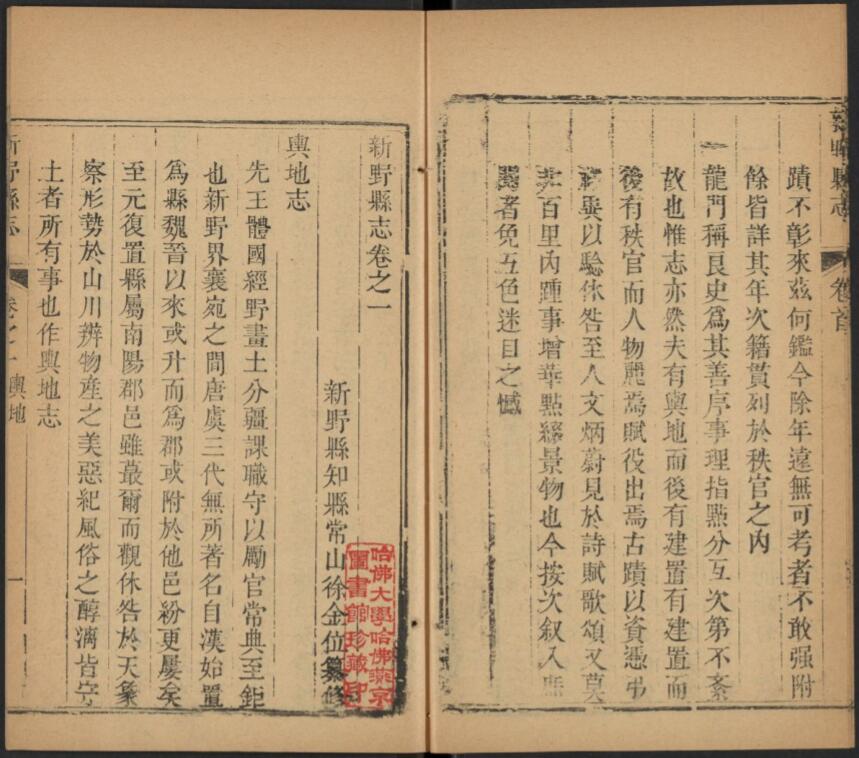 新野縣志 卷首
蹟不彰來玆何鑑今除年遠無可考者不敢强附
餘皆詳其年次籍貫列於秩官之内
一龍門稱良史爲其善序事理指㸃分互次第不紊
故也惟志亦然夫有輿地而後有建置有建置而
後有秩官而人物麗焉賦役出焉古蹟以資憑弔
祥異以驗休咎至人文炳蔚見於詩賦歌頌又莫
非百里内踵事增華㸃綴景物也今按次叙入
覽者免五色迷目之憾
新野縣志卷之一
新野縣知縣常山徐金位纂修
輿地志
先王體國經野畫土分疆課職守以勵官常典至鉅
也新野界襄宛之間唐虞三代無所著名自漢始置
爲縣魏晉以來或升而爲郡或附於他邑紛更屢矣
至元復置縣屬南陽郡邑雖蕞爾而觀休咎於天象
察形勢於山川辨物産之美惡紀風俗之醇漓皆守
土者所有事也作輿地志
新野縣志 卷之一輿地 一
哈佛大學哈佛燕京
圖書館珍藏印